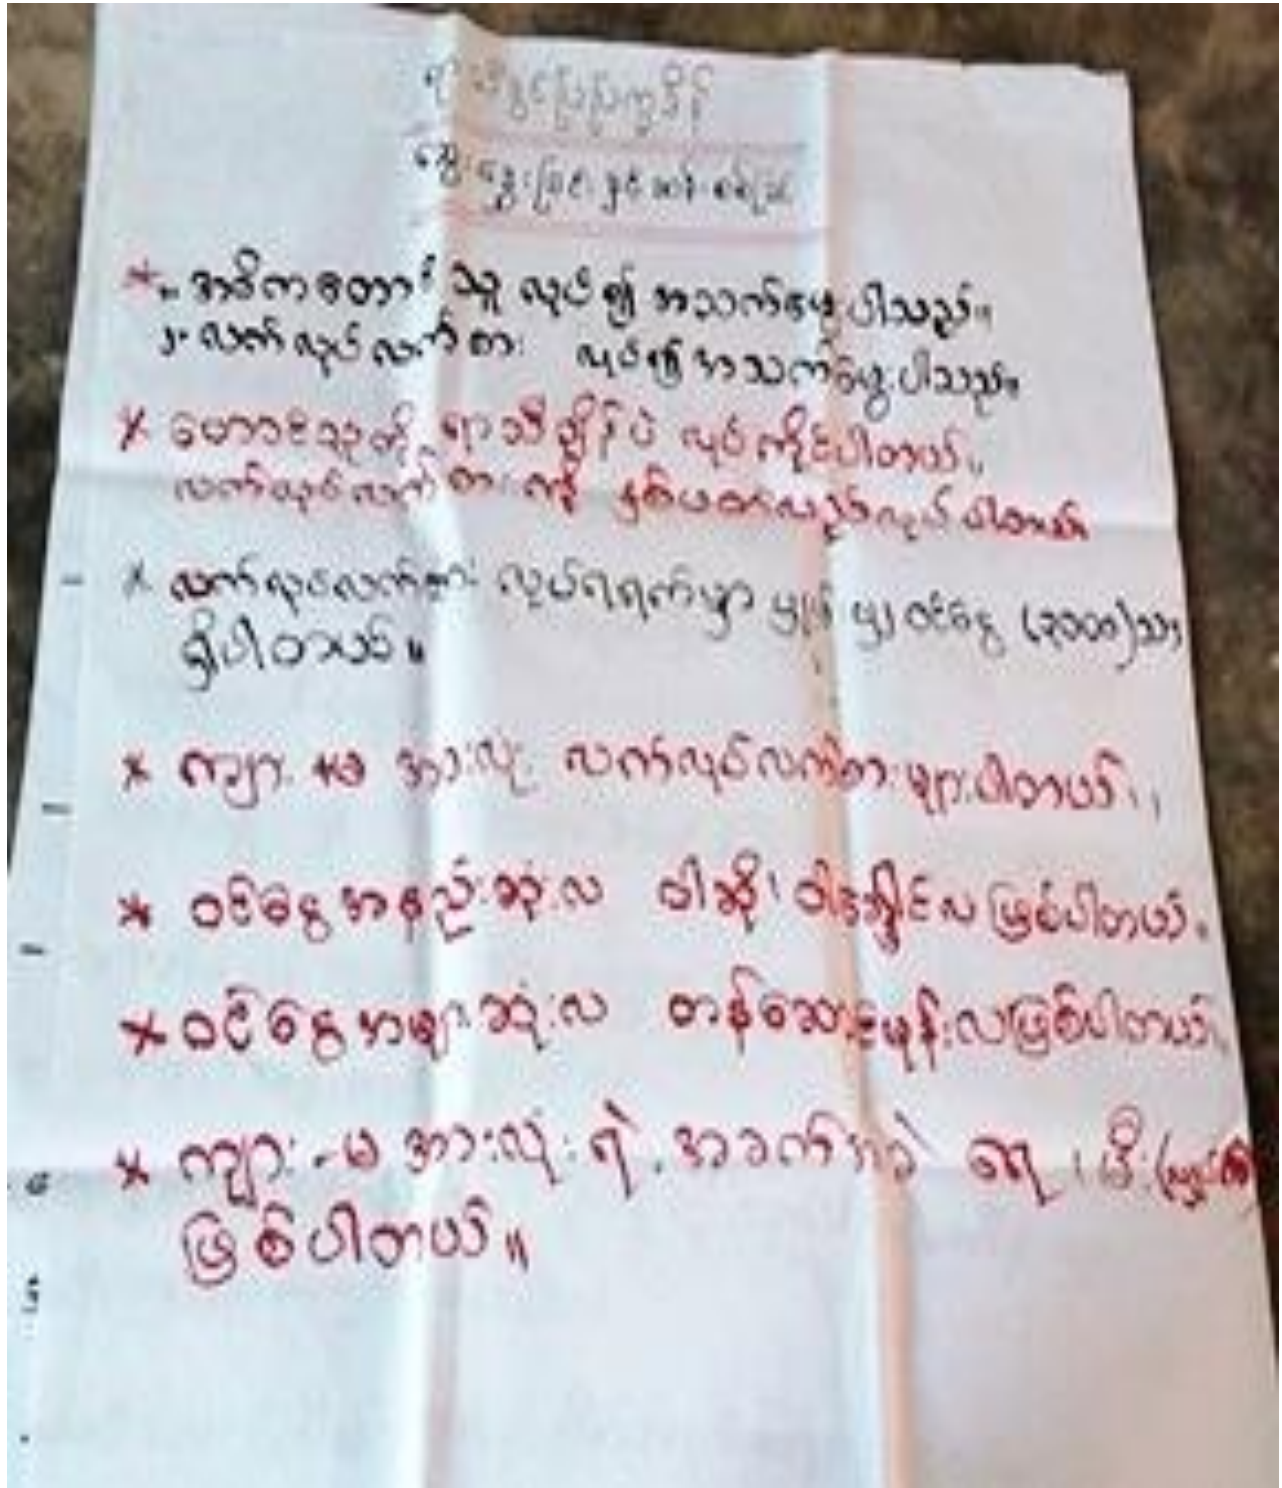 ရာသီခွင်ပြက္ခဒိန်
ဆွေးနွေးခြင်းနှင့်ဆန်းစစ်ခြင်း
* ၁။ အဓိကတောင်သူလုပ်၍ အသက်မွေးပါသည်။
၂။ လက်လုပ်လက်စား လုပ်၍အသက်မွေးပါသည်။
* တောင်သူကို ရာသီချိန်ပဲ လုပ်ကိုင်ပါတယ်။
လက်လုပ်လက်စားကို နှစ်ပတ်လည်လုပ်ပါတယ်။
* လက်လုပ်လက်စား လုပ်ရရက်မှာ ပျမ်းမျှဝင်ငွေ (၃၀၀၀)သာ
ရှိပါတယ်။
* ကျား မ အားလုံး လက်လုပ်လက်စားများပါတယ်။
* ဝင်ငွေအနည်းဆုံးလ ဝါဆို၊ ဝါခေါင်လ ဖြစ်ပါတယ်။
* ဝင်ငွေအများဆုံးလ တန်ဆောင်မုန်းလဖြစ်ပါတယ်။
* ကျား-မ အားလုံးရဲ့ အခက်အခဲ ရေ၊ မီး
ဖြစ်ပါတယ်။